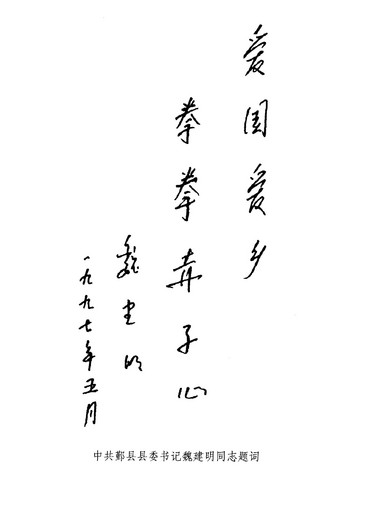 爱国爱乡
拳拳赤子心
魏建明
一九九七年五月
中共鄞县县委书记魏建明同志题词